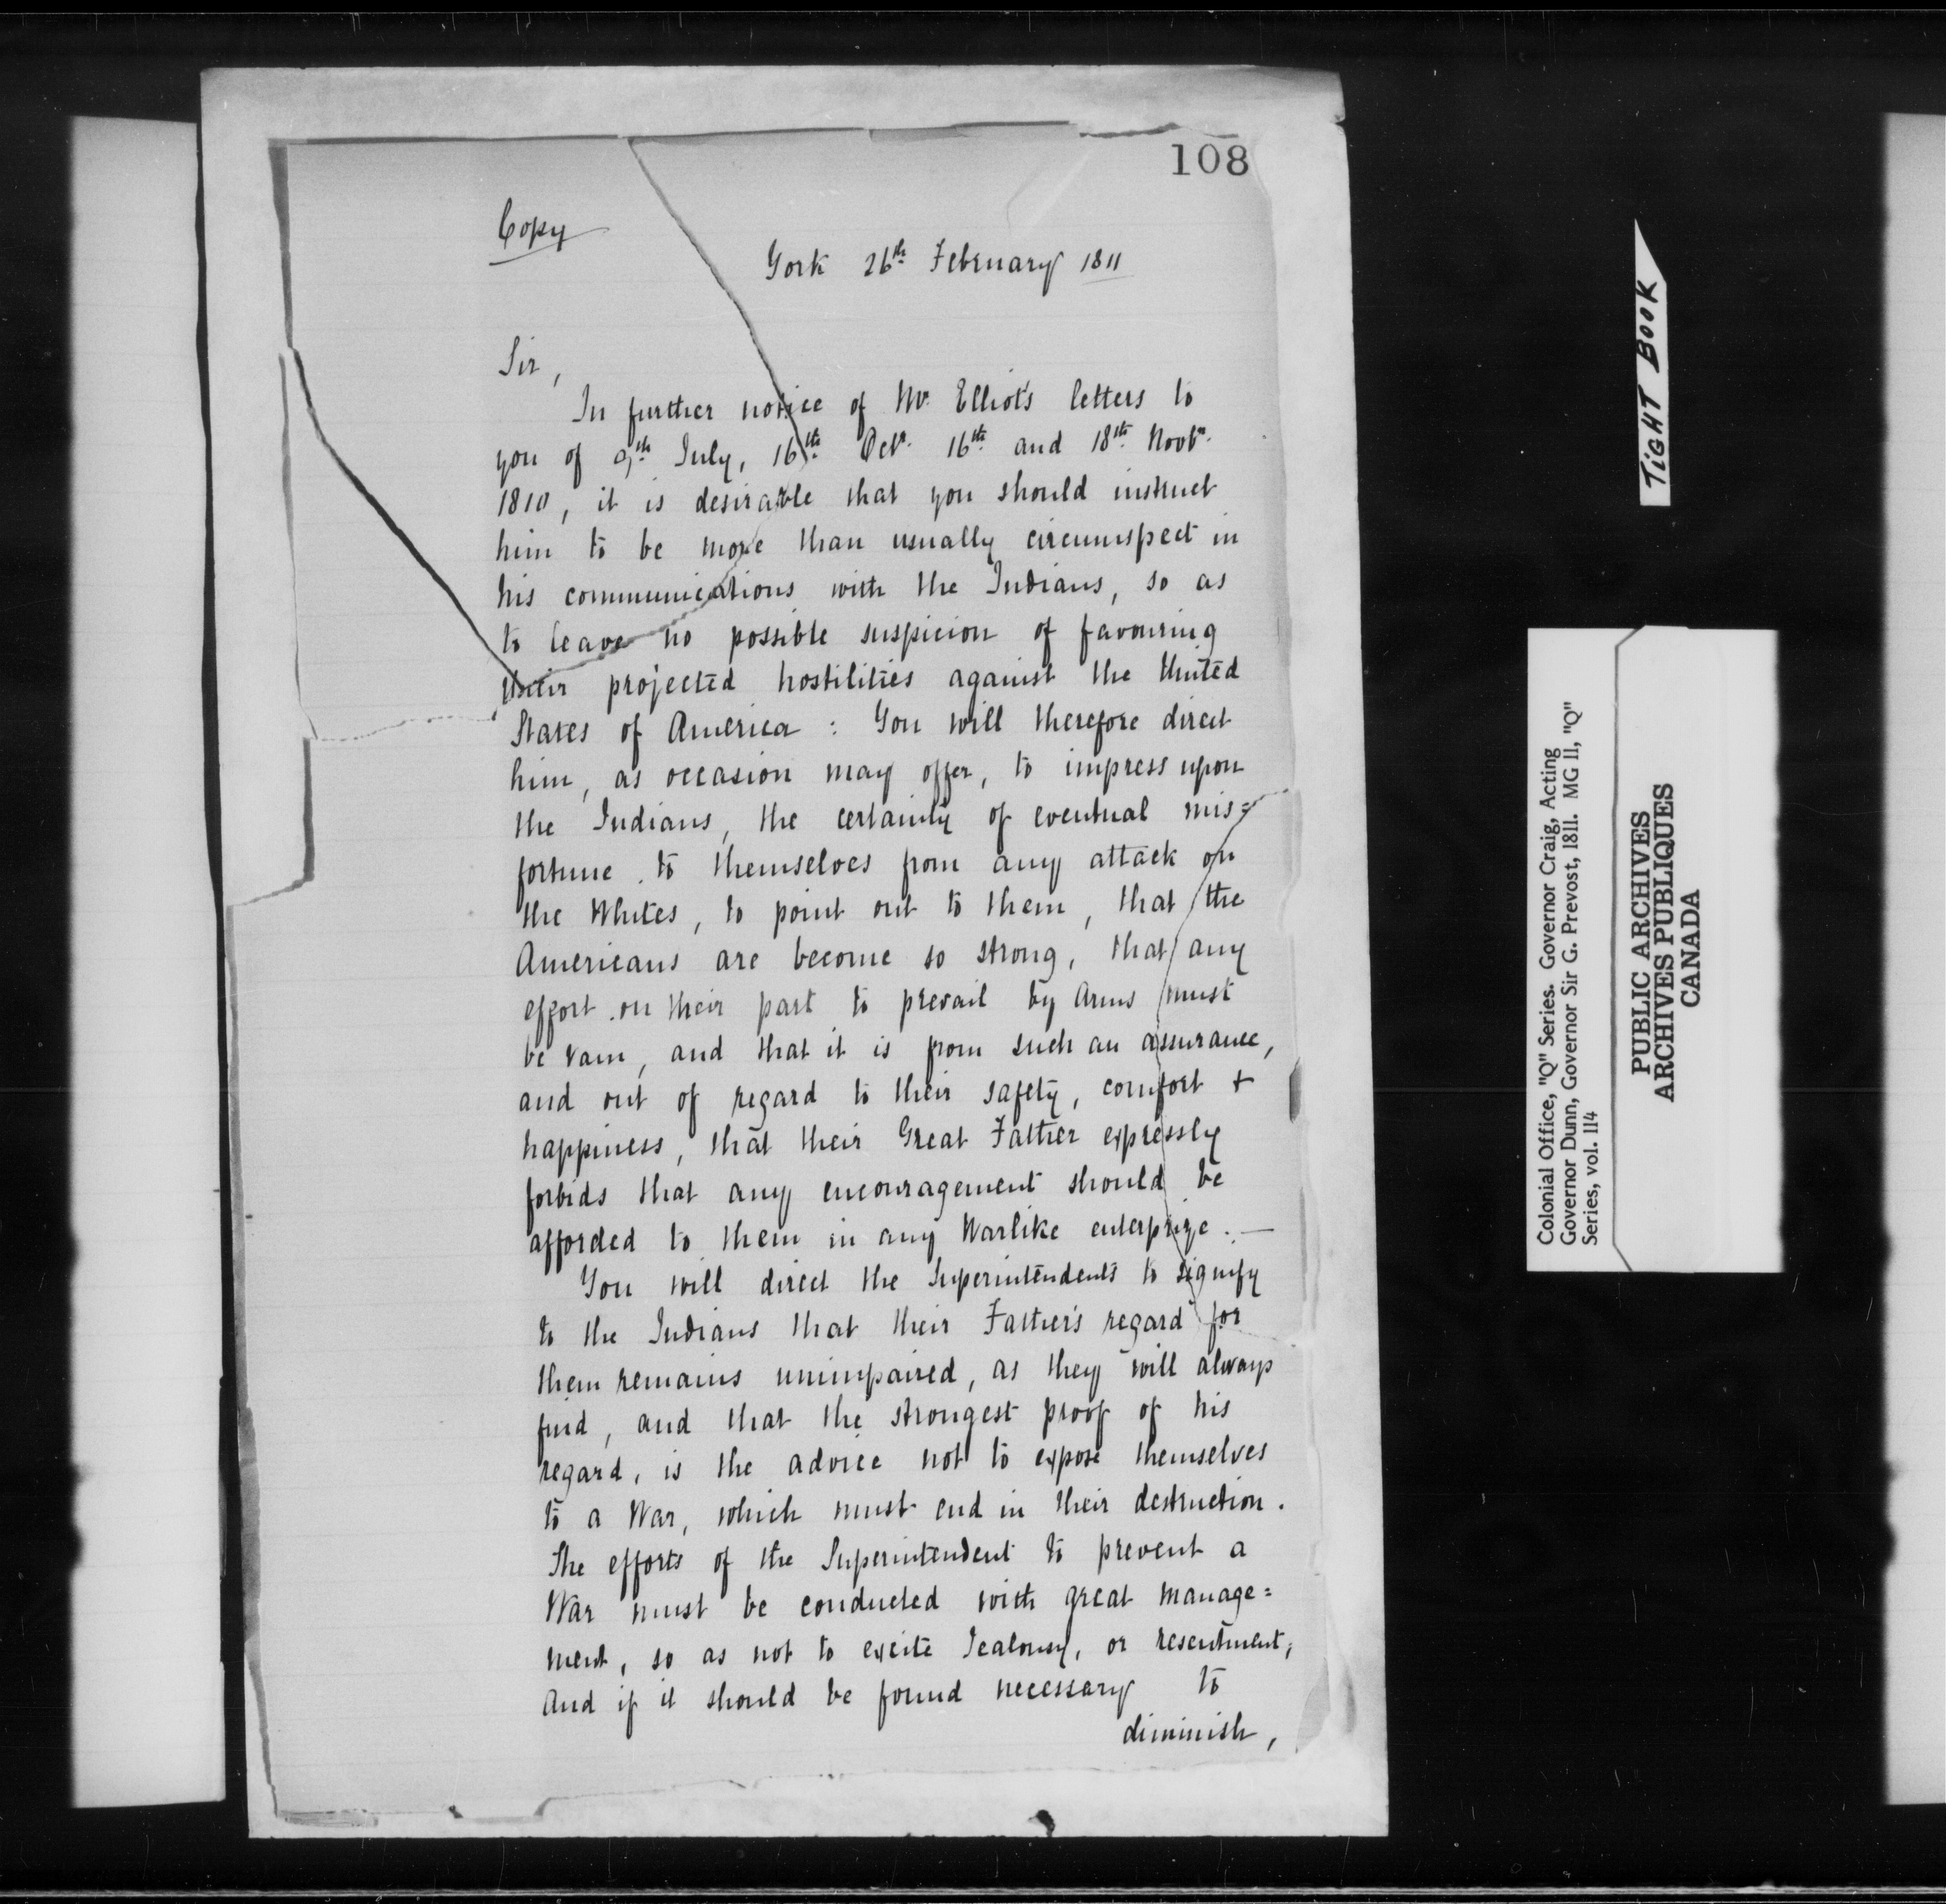 108
Copy
York 26th February 1811
Sir,
In further notice of Mr. Elliot's letters to
you of 9th July, 16th Octr. 16th and 18th Novbr.
1810, it is desirable that you should instruct
him to be more than usually circumspect in
his communications with the Indians, so as
to leave no possible suspicion of favouring
their projected hostilities against the United
States of America : You will therefore direct
him, as occasion may offer, to impress upon
the Indians, the certainty of eventual mis=
fortune to themselves from any attack on
the Whites, to point out to them, that the
Americans are become so strong, that any
effort on their part to prevail by Arms must
be vain, and that it is from such an assurance,
and out of regard to their safety, comfort +
happiness, that their Great Father expressly
forbids that any encouragement should be
afforded to them in any Warlike enterprize. —
You will direct the Superintendents to signify
to the Indians that their Father's regard for
them remains unimpaired, as they will always
find, and that the strongest proof of his
regard, is the advice not to expose themselves
to a War, which must end in their destruction.
The efforts of the Superintendent to prevent a
War must be conducted with great manage=
ment, so as not to excite Jealousy, or resentment;
And if it should be found necessary to
diminish,
TIGHT BOOK
Colonial Office, "Q" Series. Governor Craig, Acting
Governor Dunn, Governor Sir G. Prevost, 1811. MG 11, "Q"
Series, vol. 114
PUBLIC ARCHIVES
ARCHIVES PUBLIQUES
CANADA